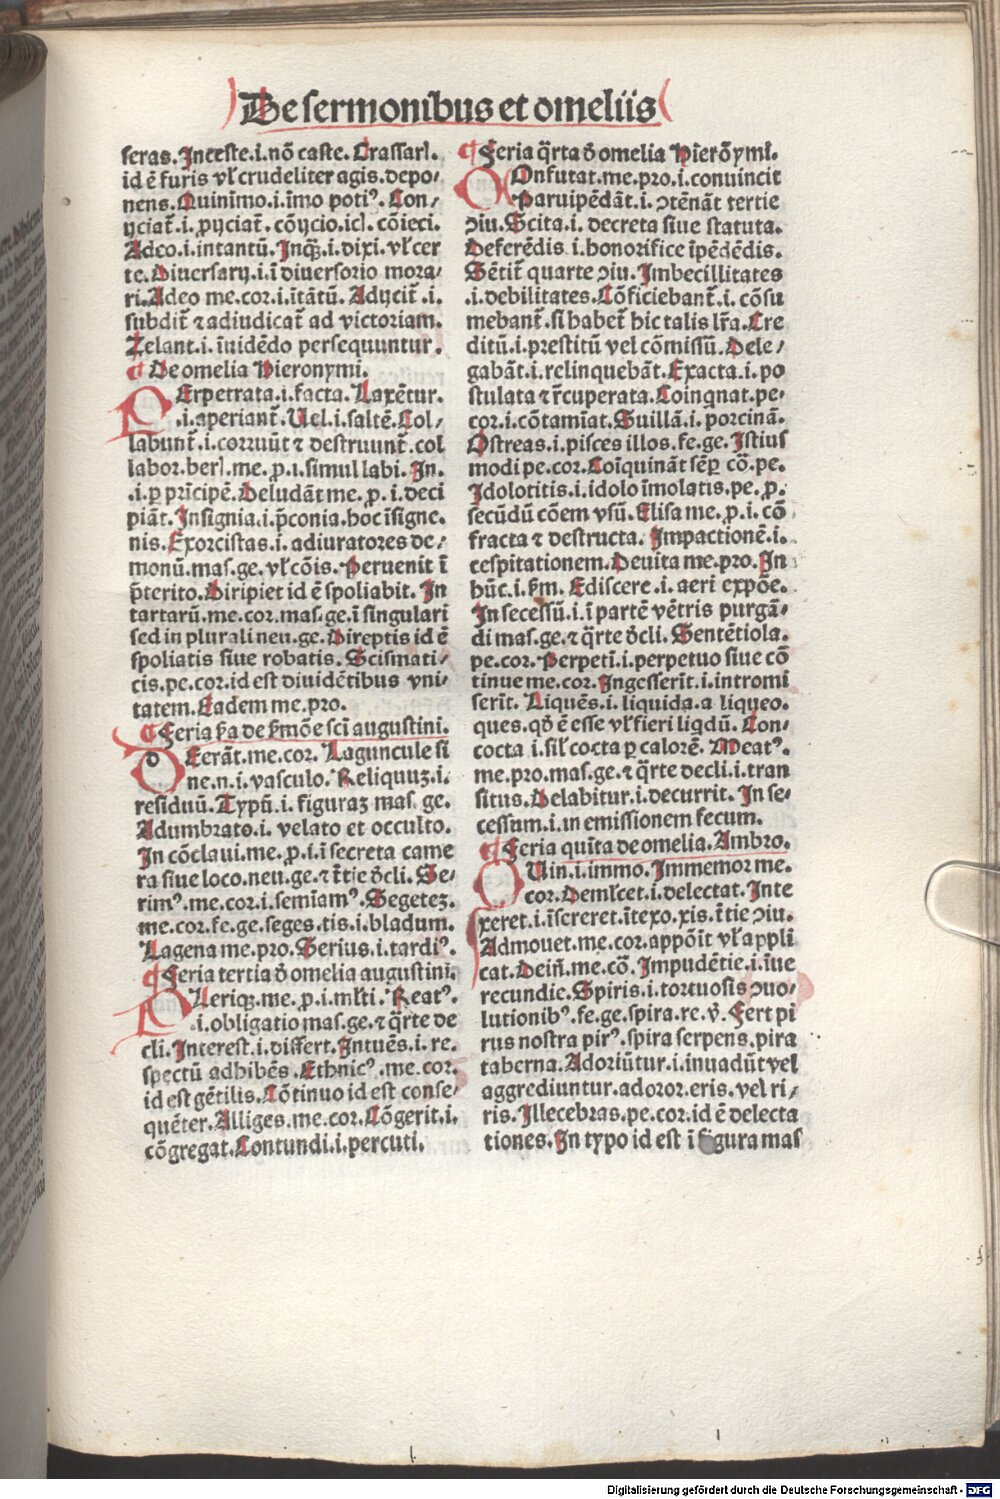 De sermonibus et omeliis
feras. Inceste.i.nō caste. Crassari.
id ē furis vł crudeliter agis. depo⸗
nens. Quinimo.i.īmo poti⁹. Con⸗
ijciat̄.i. ꝓijciat̄. cōijcio.icī. cōieci.
Adeo.i.intantū. Inqꝫ.i.dixi. vł cer
te. Diuersarij.i.ī diuersorio mora⸗
ri. Adeo me.cor.i.ītātū. Adijcit̄ .i.
subdit̄ ⁊ adiudicat̄ ad victoriam.
Zelant.i.īuidēdo persequuntur.
¶ De omelia Hieronymi.
PErpetrata.i.facta. Laxētur.
.i.aperiant̄. Uel.i.saltē. Col⸗
labunt̄.i.corruūt ⁊ destruunt̄. col
labor.beri.me.ꝓ.i.simul labi. In.
.i.ꝑ prīcipē. Deludāt me.ꝓ.i.deci
piāt. Insignia.i.p̄conia.hoc īsigne.
nis. Exorcistas.i.adiuratores de⸗
monū.mas.ge.vł cōis. Peruenit ī
p̄terito. Diripiet id ē spoliabit. In
tartarū.me.cor.mas.ge.ī singulari
sed in plurali neu.ge. Direptis id ē
spoliatis siue robatis. Scismati⸗
cis.pe.cor.id est diuidētibus vni⸗
tatem. Eadem me.pro.
¶ Feria ẜa de ẜmōe sci augustini.
dEerāt.me.cor. Laguncule si
ne.n.i.vasculo. Reliquuꝫ.i.
residuū. Typū.i.figuraꝫ mas.ge.
Adumbrato.i. velato et occulto.
In cōclaui.me.ꝓ.i.ī secreta came
ra siue loco.neu.ge.⁊ t̄tie d̄cli. Se⸗
rim⁹.me.cor.i.semīam⁹. Segeteꝫ.
me.cor.fe.ge.seges.tis.i.bladum.
Lagena me.pro. Serius.i.tardi⁹.
¶ Feria tertia d̄ omelia augustini.
PLeriqꝫ.me.ꝓ.i.mlti. Reat⁹.
.i.obligatio mas.ge.⁊ q̄rte de
cli. Interest.i.differt. Intuēs.i.re.
spectū adhibēs. Ethnic⁹.me.cor.
id est gētilis. Cōtinuo id est conse⸗
quēter. Alliges.me.cor. Cōgerit.i.
cōgregat. Contundi.i.percuti.
¶ Feria q̄rta d̄ omelia Hierōymi.
COnfutat.me.pro.i.conuincit
Paruipēdāt.i. ↄtēnāt tertie
ↄiu. Scita.i. decreta siue statuta.
Deferēdis.i.honorifice īpēdēdis.
Sētit̄ quarte ↄiu. Imbecillitates
.i.debilitates. Cōficiebant̄.i. cōsu
mebant̄.si habet̄ hic talis lr̄a. Cre
ditū.i.prestitū vel cōmissū. Dele⸗
gabāt.i.relinquebāt. Exacta.i.po
stulata ⁊ r̄cuperata. Coinqnat.pe⸗
cor.i.cōtamīat. Suillā.i.porcinā.
Ostreas.i.pisces illos.fe.ge. Istius
modi pe.cor. Coīquināt sēꝑ cō.pe.
Idolotitis.i.idolo īmolatis.pe.ꝓ.
secūdū cōem vsū. Elisa me.ꝓ.i.cō
fracta ⁊ destructa. Impactionē.i.
cespitationem. Deuita me.pro. In
hūc.i.ẜm. Ediscere.i.aeri expōe.
In secessū.i.ī partē vētris purgā⸗
di mas.ge.⁊ q̄rte d̄cli. Sentētiola.
pe.cor. Perpeti.i.perpetuo siue cō
tinue me.cor. Ingesserit.i.intromi
serit. Liquēs.i.liquida.a liqueo.
ques.qd̄ ē esse vł fieri liqdū. Con⸗
cocta.i.sił cocta ꝑ calorē. Meat⁹.
me.pro.mas.ge.⁊ q̄rte decli.i.tran
situs. Delabitur.i.decurrit. In se⸗
cessum.i.in emissionem fecum.
¶ Feria quīta de omelia. Ambro.
QUin.i.immo. Immemor me.
cor. Demlcet.i.delectat. Inte
xeret.i.īsereret.ītexo.xis.t̄tie ↄiu.
Admouet.me.cor.appōit vł appli
cat. Dein̄.me.cō. Impudētie.i.īue
recundie. Spiris.i.tortuosis ↄuo⸗
lutionib⁹.fe.ge.spira.re.v̄. Fert pi
rus nostra pir⁹.spira serpens.pira
taberna. Adoriūtur.i.inuadūt vel
aggrediuntur.adoror.eris.vel ri⸗
ris. Illecebras.pe.cor.id ē delecta
tiones. In typo id est ī figura mas
Digitalisierung gefördert durch die Deutsche Forschungsgemeinschaft - DFG